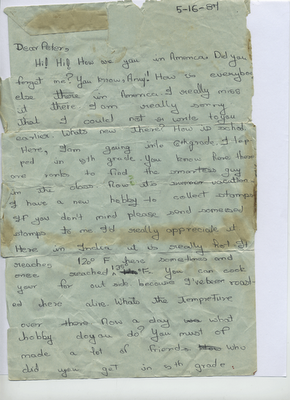 5-16-87
Dear Peter,
Hi! Hi! How are you in America? Did you
forgot me? You know Anuj! How is everybody
else there in America I really miss
it there I am really sorry
that I could not write to you
earlier. Whats new there? How is school
Here, I am going into 6th grade I
ped in 5th grade You know here
one ranks to find the smartest guy
in the class Now its summer vacation
I have a new hobby to collect stamps
If you don't mind please send some
stamps to me I'd really appreciate it
Here in India it is really hot it
reaches 120° F here sometimes and
once reached 125°F. You can cook
your out side because I've been roast-
ed here alive Whats the tempreture
over there Now a day what
hobby do you do? You must of
made a lot of friends who
did you get in 5th grade,